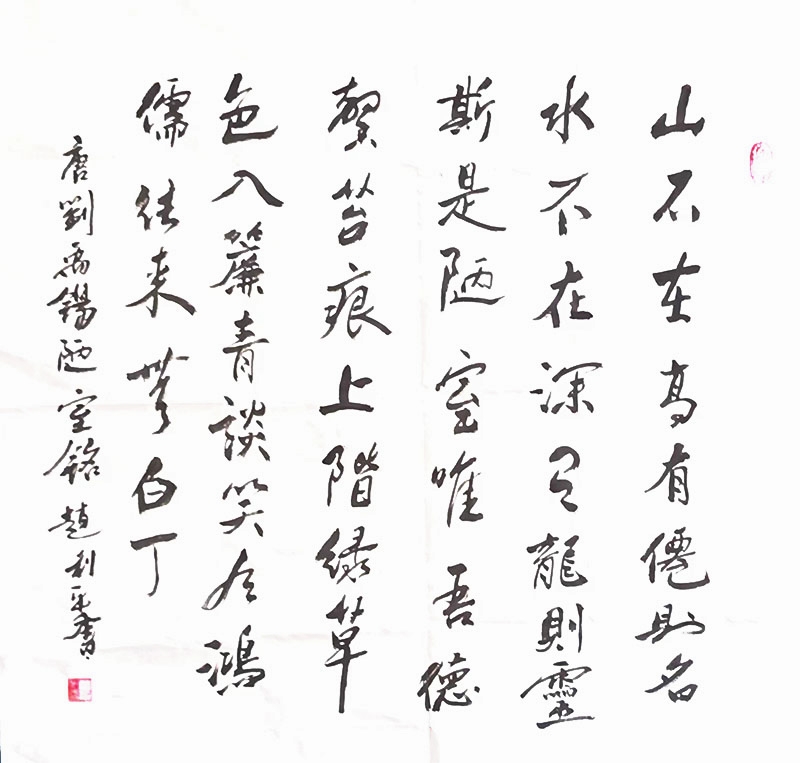 山不在高有僊則名
水不在深有龍則靈
斯是陋室唯吾德
馨苔痕上階綠草
色入簾青談笑有鴻
儒往來無白丁
唐劉禹錫陋室銘 趙利平書